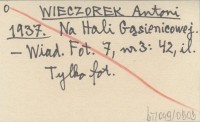 0
WIECZOREK Antoni
1937. Na Hali Gąsienicowej.
- Wiad. Fot. 7, nr 3: 42, il.
Tylko fot.